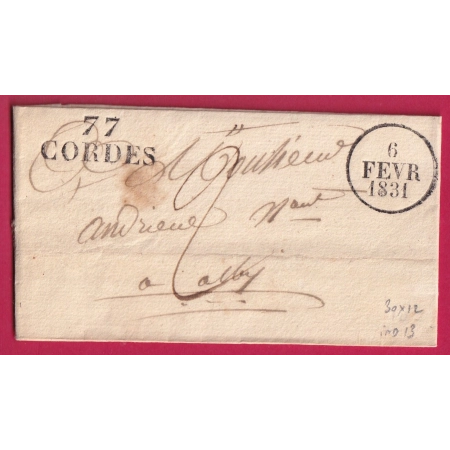 77
CORDES
6
FEVR
1831
Monsieur
andrieu
a alby
30x12
ind 13